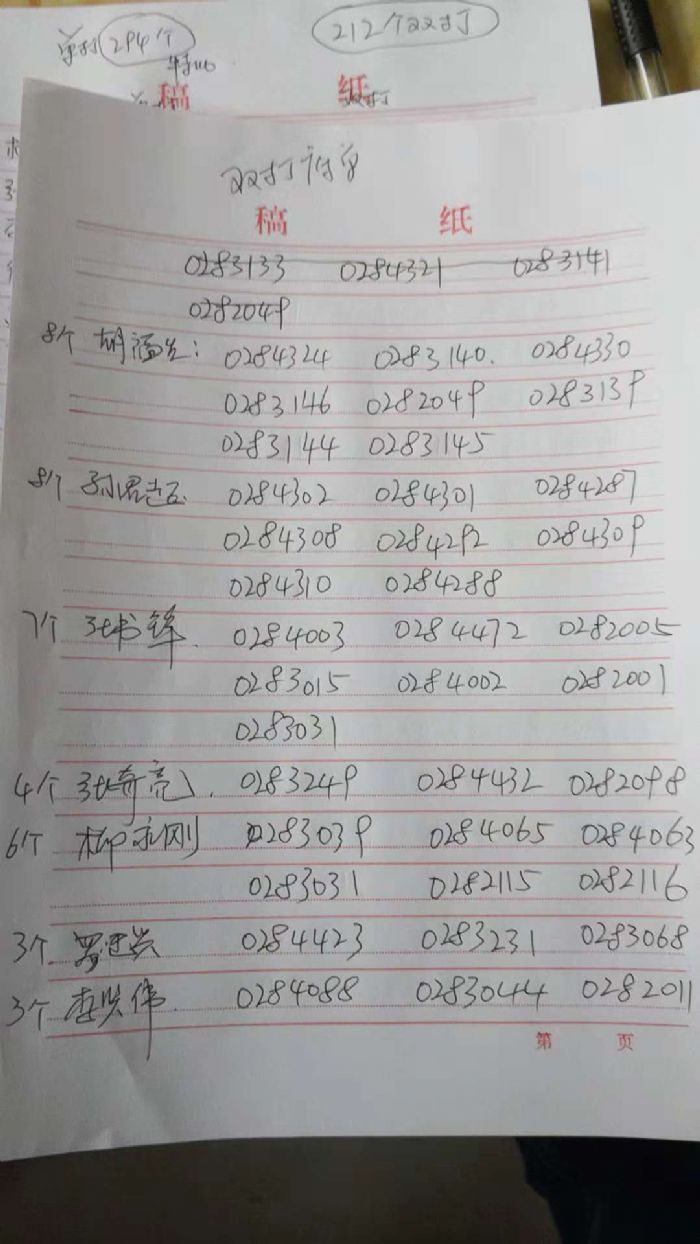 单打 294个 212个双打
稿 纸
双打
双打
稿 纸
0283133 0284321 0283141
0282049
8个 胡福生: 0284324 0283140. 0284330
0283146 0282049 0283139
0283144 0283145
8个 0284302 0284301 0284287
0284308 0284292 0284309
0284310 0284288
7个 张书锋. 0284003 0284472 0282005
0283015 0284002 0282001
0283031
4个 张奇亮. 0283249 0284432 0282098
6个 柳永刚 0283039 0284065 0284063
0283031 0282115 0282116
3个 0284423 0283231 0283068
3个 李兴伟. 0284088 0283044 0282011
第 页